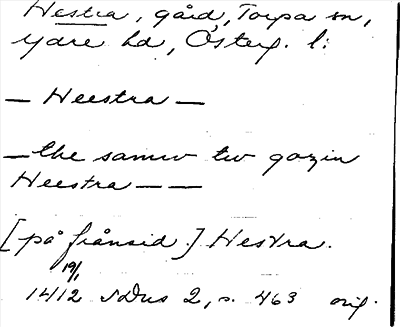 Hestra, gård, Torpa sn,
Ydre hd, Österg. l:
— Heestra —
— the samw tw gozin
Heestra — —
[på frånsid.] Hestra.
19/1
1412 SDns 2, s. 463 orig.